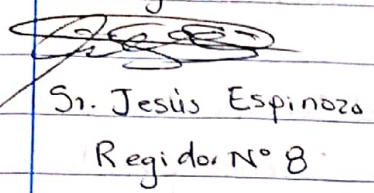 Sr. Jesús Espinoza
Regidor N° 8